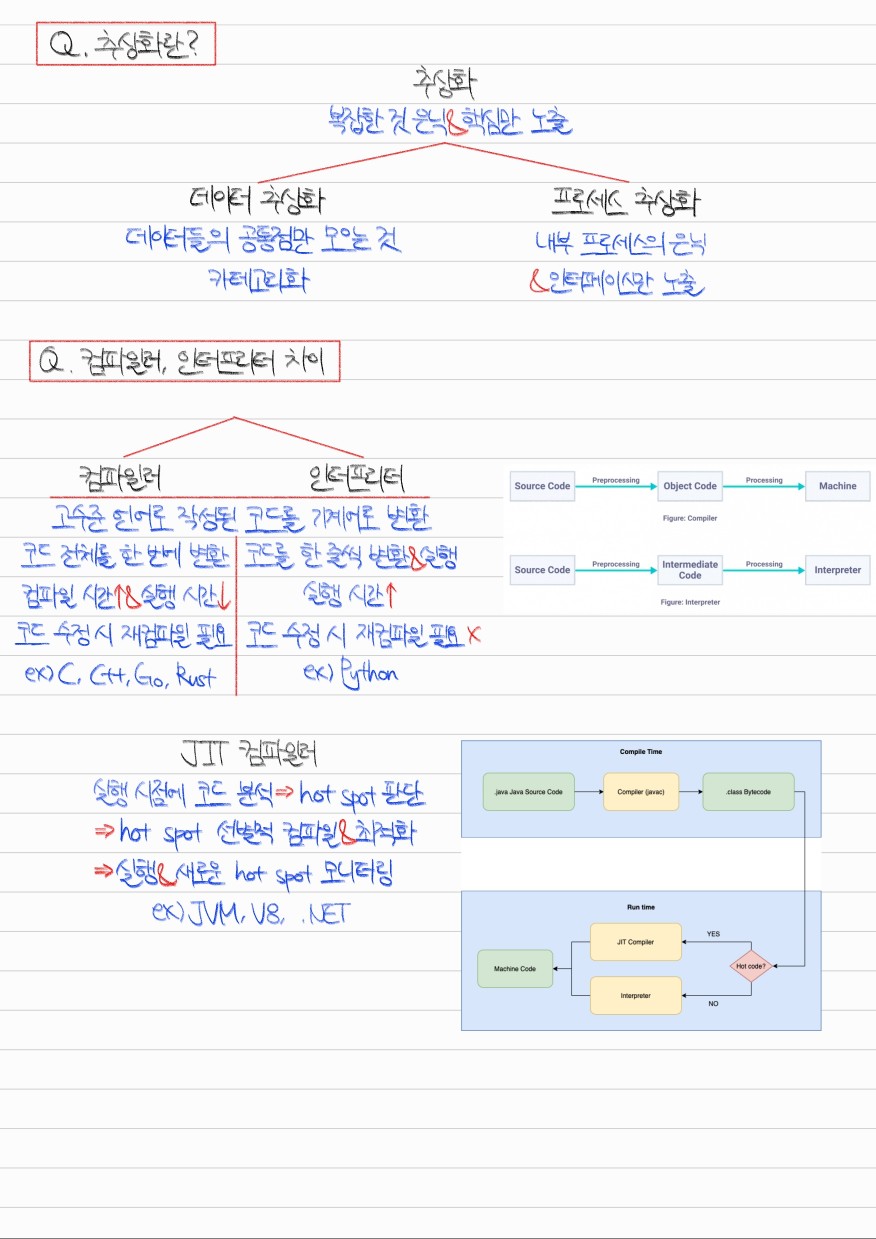 Q. 추상화란?
추상화
복잡한 것 은닉&핵심만 노출
데이터 추상화
데이터들의 공통점만 모으는 것
카테고리화
프로세스 추상화
내부 프로세스의 은닉
&인터페이스만 노출
Q. 컴파일러, 인터프리터 차이
컴파일러 인터프리터
고수준 언어로 작성된 코드를 기계어로 변환
코드 전체를 한 번에 변환
컴파일 시간↑&실행 시간↓
코드 수정 시 재컴파일 필요
ex) C, C++, Go, Rust
코드를 한 줄씩 변환&실행
실행 시간↑
코드 수정 시 재컴파일 필요 X
ex) Python
Source Code Preprocessing Object Code Processing Machine
Figure: Compiler
Source Code Preprocessing Intermediate Code Processing Interpreter
Figure: Interpreter
JIT 컴파일러
실행 시점에 코드 분석⇒hot spot 판단
⇒hot spot 선별적 컴파일&최적화
⇒실행&새로운 hot spot 모니터링
ex) JVM, V8, .NET
Compile Time
.java Java Source Code Compiler (javac) .class Bytecode
Run time
YES
JIT Compiler
Machine Code Hot code?
Interpreter
NO